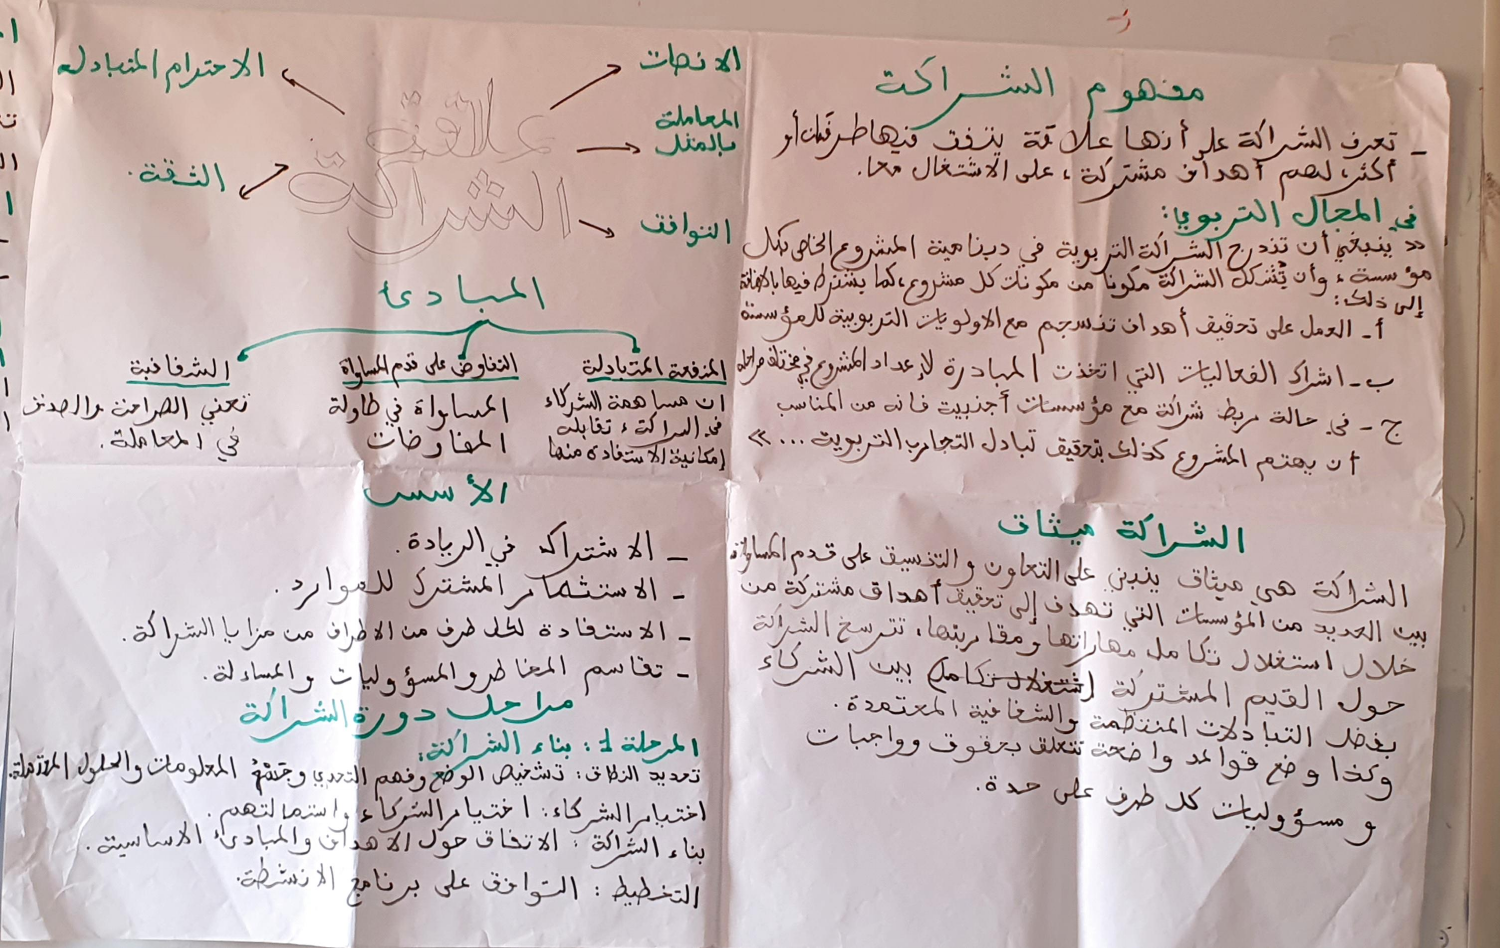 مفهوم الشراكة
_ تعرف الشراكة على أنها علاقة يتفق فيها طرفان أو
أكثر، لهم أهداف مشتركة، على الاشتغال معا.
في المجال التربوي:
« ينبغي أن تندرج الشراكة التربوية في دينامية المشروع الخاص بكل
مؤسسة، وأن تشكل الشراكة مكونا من مكونات كل مشروع، كما يشترط فيها بالاضافة
إلى ذلك:
أ- العمل على تحقيق أهداف تنسجم مع الاولويات التربوية للمؤسسة
ب- اشراك الفعاليات التي اتخذت المبادرة لإعداد المشروع في مختلف مراحله
ج- في حالة ربط شراكة مع مؤسسات أجنبية فانه من المناسب
أن يهتم المشروع كذلك بتحقيق تبادل التجارب التربوية ... »
الشراكة ميثاق
الشراكة هي ميثاق ينبني على التعاون والتنسيق على قدم المساواة
بين العديد من المؤسسات التي تهدف إلى تحقيق أهداف مشتركة من
خلال استغلال تكامل مهاراتها ومقارباتها، تترسخ الشراكة
حول القيم المشتركة بين الشركاء
بفضل التبادلات المنتظمة والشفافية المعتمدة.
وكذا وضع قواعد واضحة تتعلق بحقوق وواجبات
و مسؤوليات كل طرف على حدة.
علاقة
الشراكة
الانصات
المعاملة
بالمثل
التوافق
الاحترام المتبادل
الثقة.
المبادئ
المنفعة المتبادلة
ان مساهمة الشركاء
في الشراكة، تقابله
إمكانية الاستفادة منها
التفاوض على قدم المساواة
المساواة في طاولة
المفاوضات
الشفافية
تعني الصراحة والصدق
في المعاملة.
الأسس
_ الاشتراك في الريادة.
- الاستثمار المشترك للموارد.
- الاستفادة لكل طرف من الاطراف من مزايا الشراكة.
- تقاسم المخاطر والمسؤوليات والمساءلة.
مراحل دورة الشراكة
المرحلة 1: بناء الشراكة:
تحديد النطاق: تشخيص الوضع وفهم التحدي وجمع المعلومات والحلول المحتملة.
اختيار الشركاء: اختيار الشركاء واستمالتهم.
بناء الشراكة: الاتفاق حول الاهداف والمبادئ الاساسية.
التخطيط: التوافق على برنامج الانشطة.